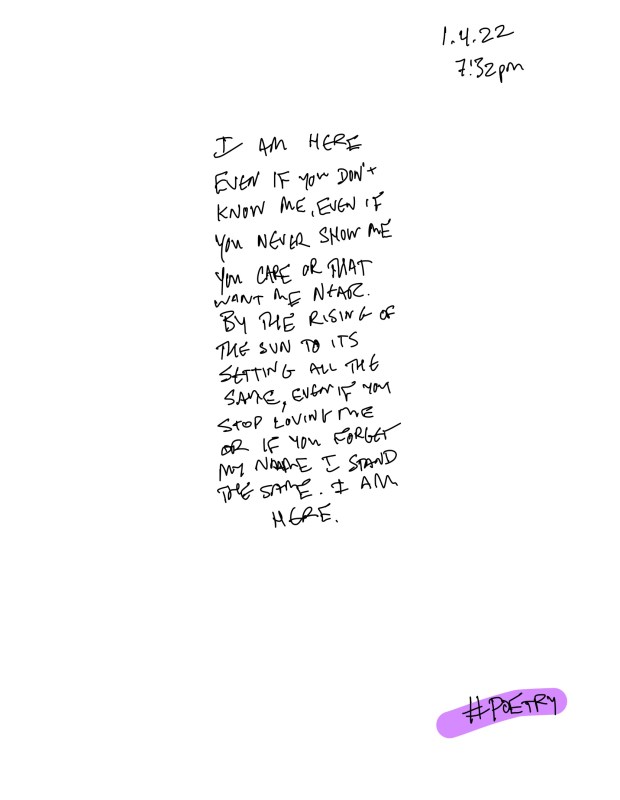 1.4.22
7:32pm
I AM HERE
EVEN IF YOU DON'T
KNOW ME, EVEN IF
YOU NEVER SHOW ME
YOU CARE OR THAT
WANT ME NEAR.
BY THE RISING OF
THE SUN TO ITS
SETTING ALL THE
SAME, EVEN IF YOU
STOP LOVING ME
OR IF YOU FORGET
MY NAME I STAND
THE SAME. I AM
HERE.
#POETRY